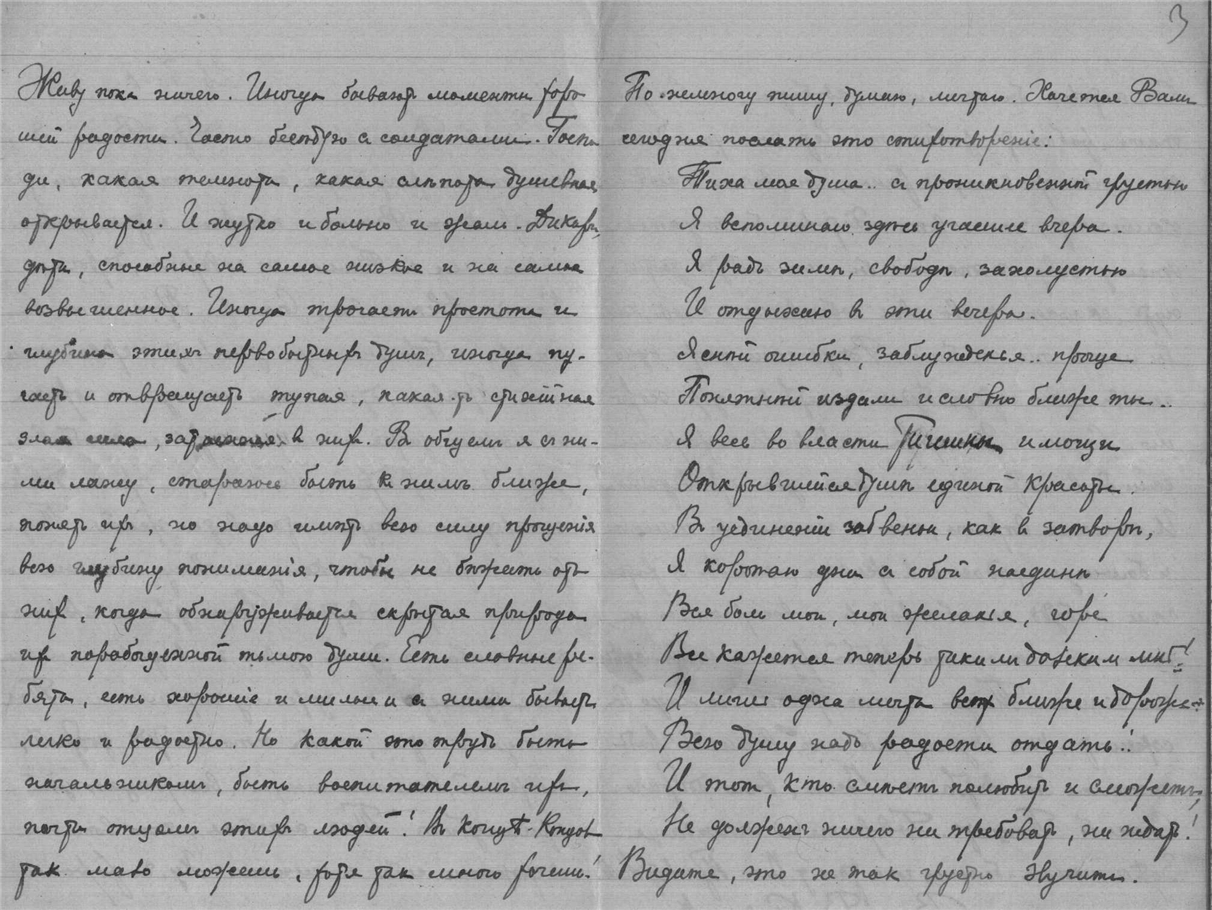 3
Живу пока ничего. Иногда бывают моменты хоро-
шей радости. Часто беседую с солдатами. Госпо-
ди, какая темнота, какая слѣпота душевная
открывается. И жутко и больно и жаль. Дикари,
дѣти, способные на самое низкое и на самое
возвышенное. Иногда трогает простота и
глубина этихъ первобытныхъ душъ, иногда пу-
гаетъ и отвращаетъ тупая, какая-то стихійная
злая сила, в них. В общем я съ ни-
ми лажу, стараюсь быть к нимъ ближе,
понять их, но надо имѣть всю силу прощенія
всю глубину пониманія, чтобы не бѣжать отъ
них, когда обнаруживается скрытая природа
их порабощенной тьмою души. Есть славные ре-
бята, есть хорошіе и милые и с ними бываетъ
легко и радостно. Но какой это трудъ быть
начальником, быть воспитателемъ ихъ,
почти отцомъ этихъ людей! Въ концѣ-концов
так мало можешь, хотя так много хочешь!
По-немногу пишу, думаю, мечтаю. Хочется Вамъ
сегодня послать это стихотвореніе:
Тиха моя душа.. с проникновенной грустью
Я вспоминаю здѣсь ушедшие вчера.
Я радъ зимѣ, свободѣ, захолустью
И отдыхаю в эти вечера.
Ясней ошибки, заблужденья.. проще
Понятнѣй издали и словно ближе ты..
Я весь во власти Тишины и мощи
Открывшейся душѣ единой Красоты.
Въ уединеніи забвенья, как в затворѣ,
Я коротаю дни с собой наединѣ
Вся боль моя, мои желанья, горе
Все кажется теперь таким далеким мнѣ!
И лишь одна мечта всѣхъ ближе и дороже:
Всю душу надъ радости отдать!..
И тот, кто смѣетъ полюбить и сможетъ,
Не долженъ ничего ни требовать, ни ждать!
Видите, это не так грустно звучит.